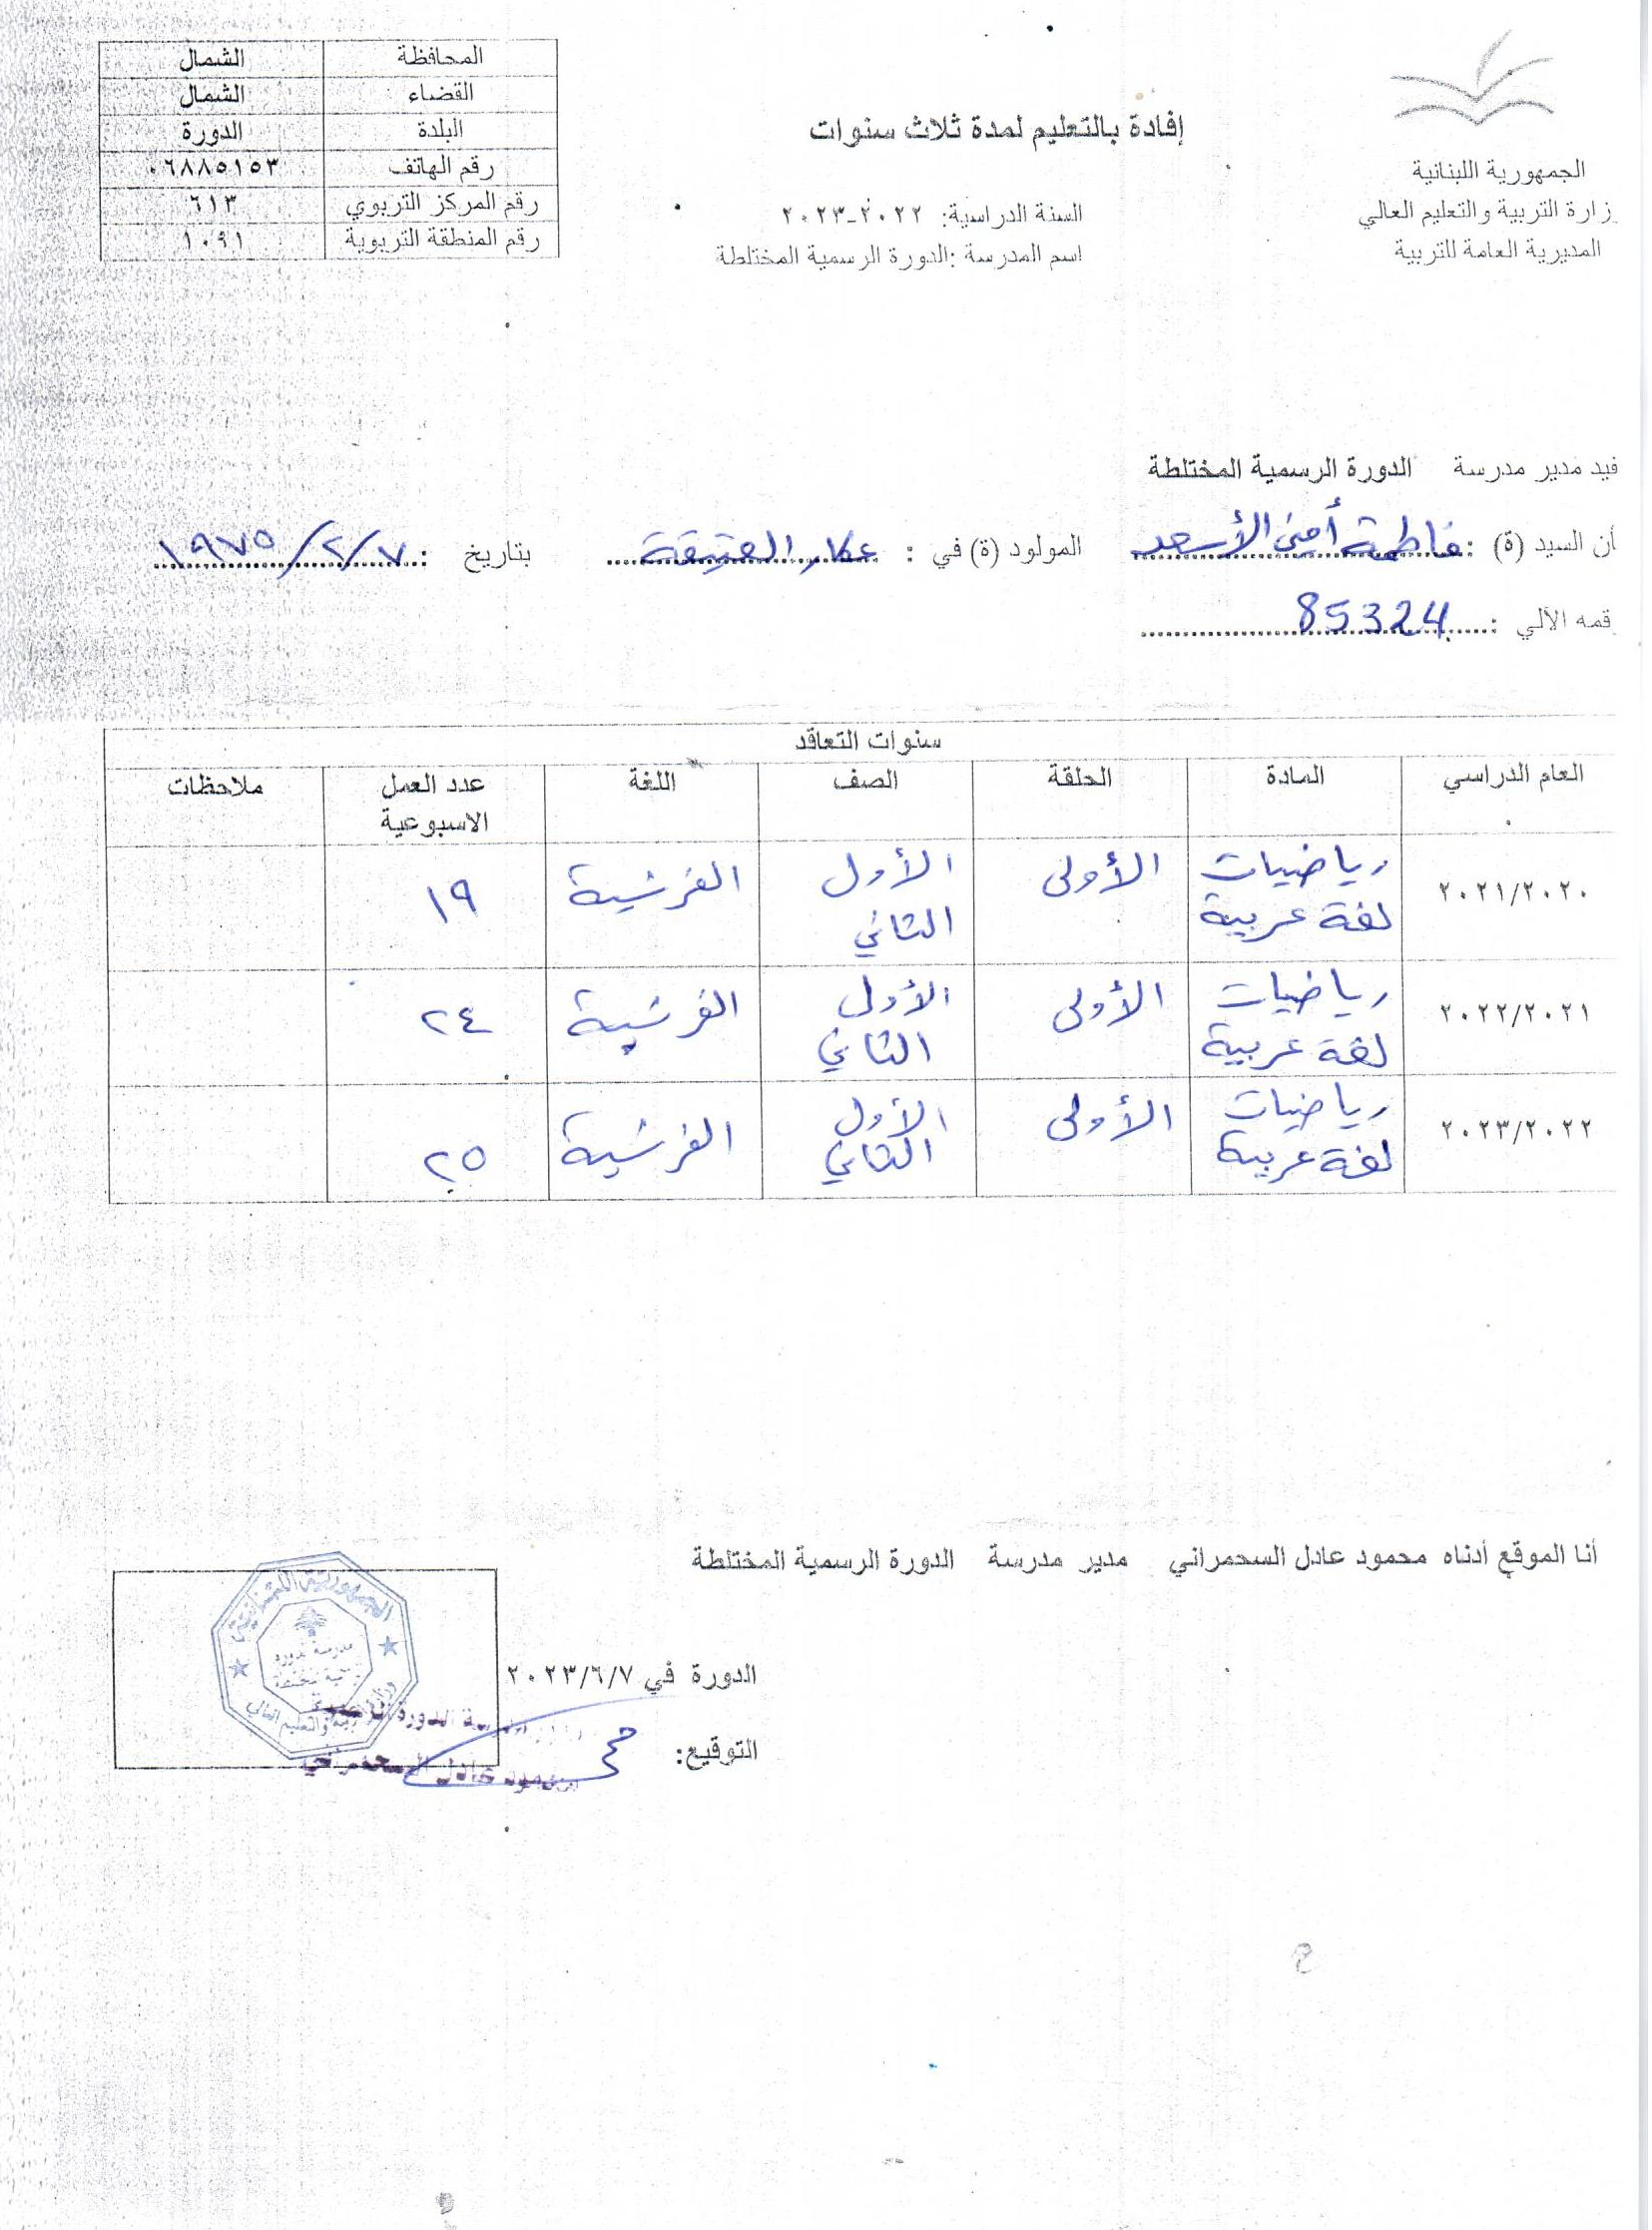 الجمهورية اللبنانية
زارة التربية والتعليم العالي
المديرية العامة للتربية
إفادة بالتعليم لمدة ثلاث سنوات
السنة الدراسية: ٢٠٢٢-٢٠٢٣
اسم المدرسة :الدورة الرسمية المختلطة
المحافظة الشمال
القضاء الشمال
البلدة الدورة
رقم الهاتف ٠٦٨٨٥١٥٣
رقم المركز التربوي ٦١٣
رقم المنطقة التربوية ١٠٩١
فيد مدير مدرسة الدورة الرسمية المختلطة
أن السيد (ة) : فاطمة أمين الأسعد المولود (ة) في : عكار العتيقة بتاريخ : ١٩٧٥/٢/٧
قمه الآلي : 85324
سنوات التعاقد
العام الدراسي المادة الحلقة الصف اللغة عدد العمل الاسبوعية ملاحظات
٢٠٢١/٢٠٢٠ رياضيات لغة عربية الأولى الأول الثاني الفرنسية ١٩
٢٠٢٢/٢٠٢١ رياضيات لغة عربية الأولى الأول الثاني الفرنسية ٢٤
٢٠٢٣/٢٠٢٢ رياضيات لغة عربية الأولى الأول الثاني الفرنسية ٢٥
أنا الموقع أدناه محمود عادل السحمراني مدير مدرسة الدورة الرسمية المختلطة
الدورة في ٢٠٢٣/٦/٧
التوقيع:
الجمهورية اللبنانية
والتعليم العالي
محمود عادل السحمراني